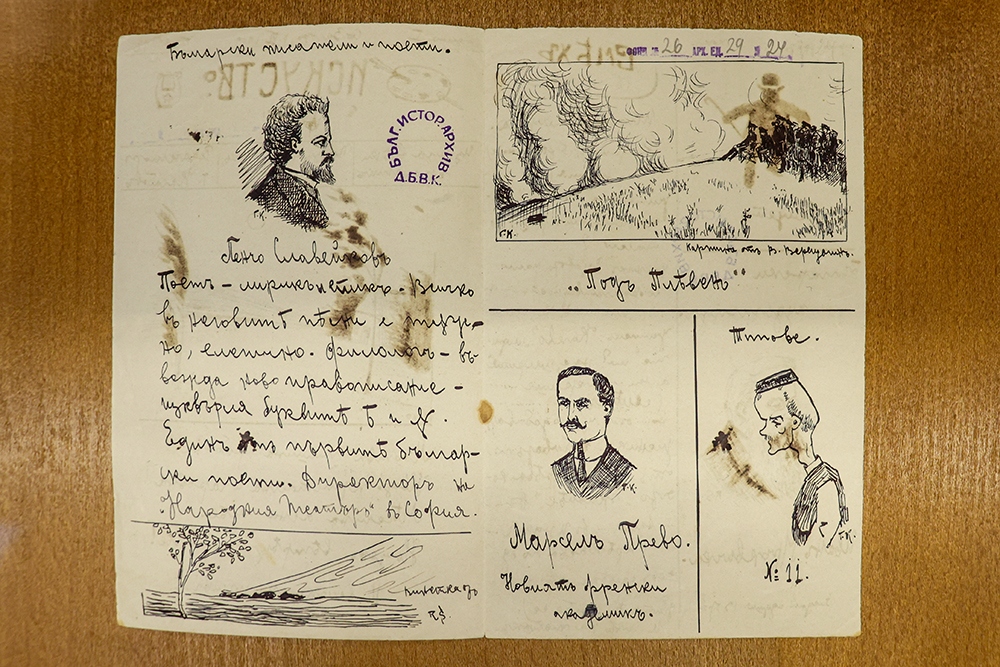 Български писатели и поети.
Г.К.
БЪЛГ. ИСТОР. АРХИВ
Д.Б.В.К.
Пенчо Славейковъ
Поетъ – лирикъ Всичко
въ неговитѣ пѣсни е
но, Филологъ – въ-
вежда ново правописание –
изхвърля буквитѣ ѣ и ѫ.
Единъ първитѣ българ-
ски поети. Директоръ на
"Народния Театъръ" въ София.
ФОНД № 26 АРХ. ЕД. 29 Л. 24
Г.К.
Картина отъ В. Верещагинъ.
„Подъ Плѣвенъ"
Г.К.
Марселъ Прево.
Новиятъ френски
академикъ.
Типове.
Г.К.
№ 11.
ИСКУСТВО